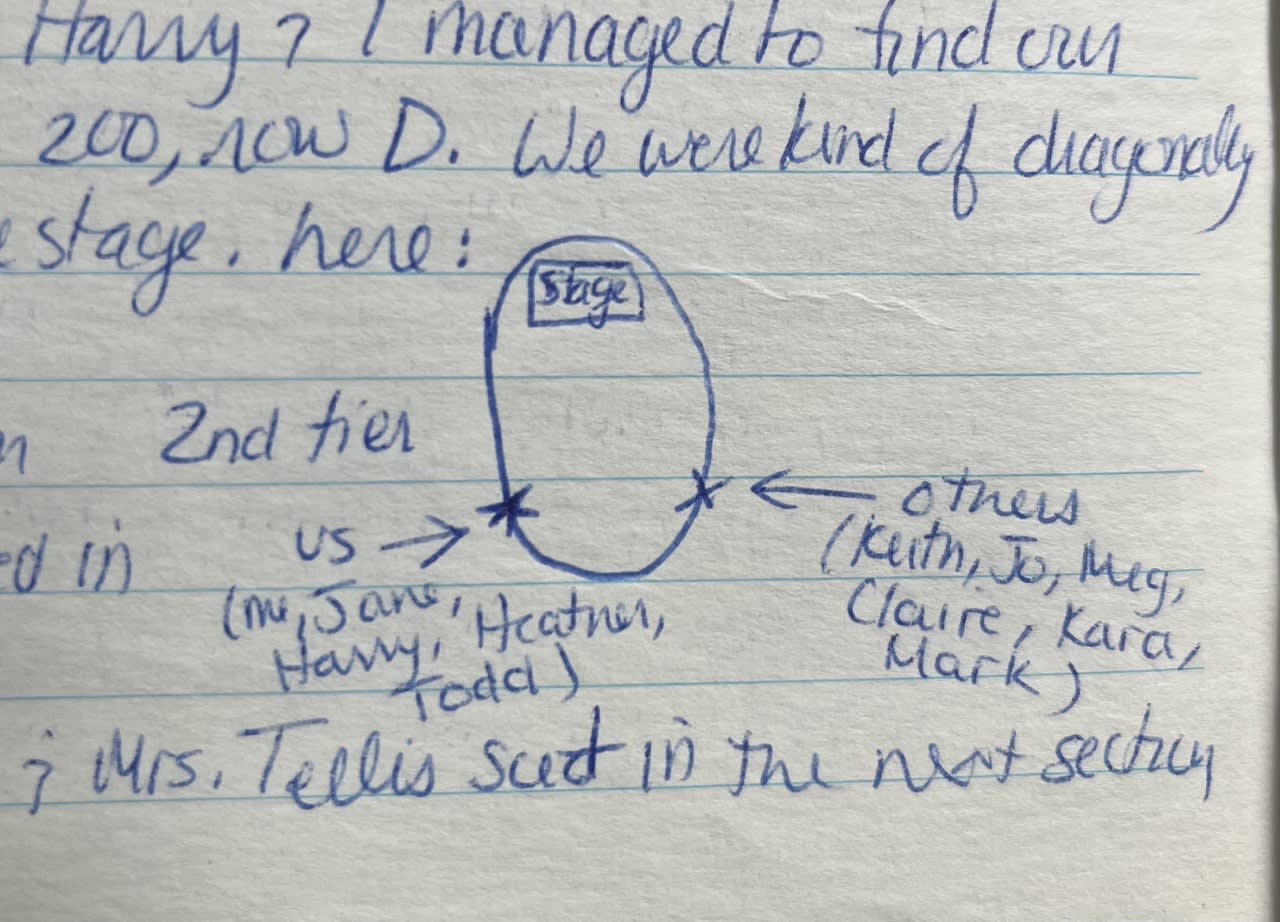 Harry & I managed to find our
200, row D. We were kind of diagonally
e stage. here:
Stage
n 2nd tier
ed in us → ← others
(me, Jane, Harry, Heather, Todd)
(Keith, Jo, Meg, Claire, Kara, Mark)
& Mrs. Tellis sat in the next section